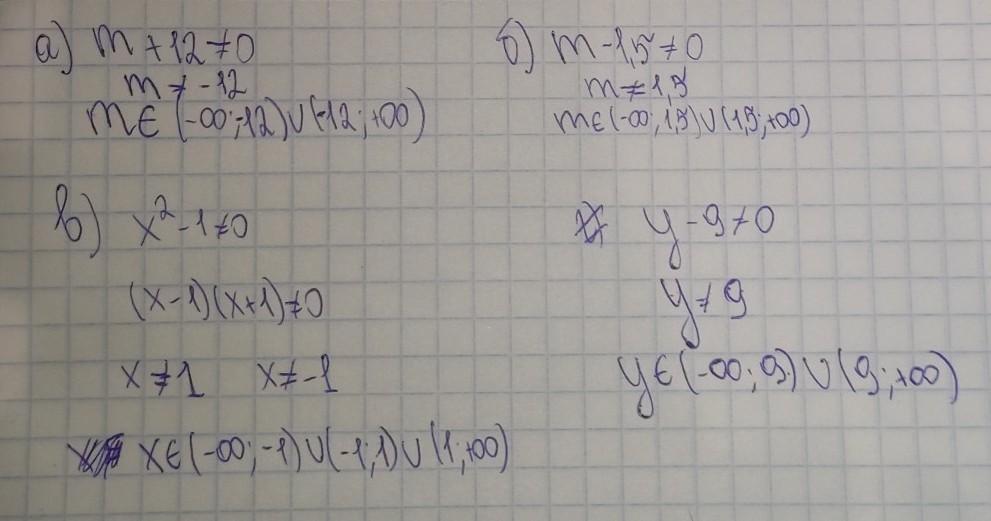 а) m + 12 ≠ 0
m ≠ -12
m ∈ (-∞; -12) ∪ (-12; +∞)
б) m - 1,5 ≠ 0
m ≠ 1,5
m ∈ (-∞; 1,5) ∪ (1,5; +∞)
в) x² - 1 ≠ 0
(x-1)(x+1) ≠ 0
x ≠ 1 x ≠ -1
x ∈ (-∞; -1) ∪ (-1; 1) ∪ (1; +∞)
y - 9 ≠ 0
y ≠ 9
y ∈ (-∞; 9) ∪ (9; +∞)